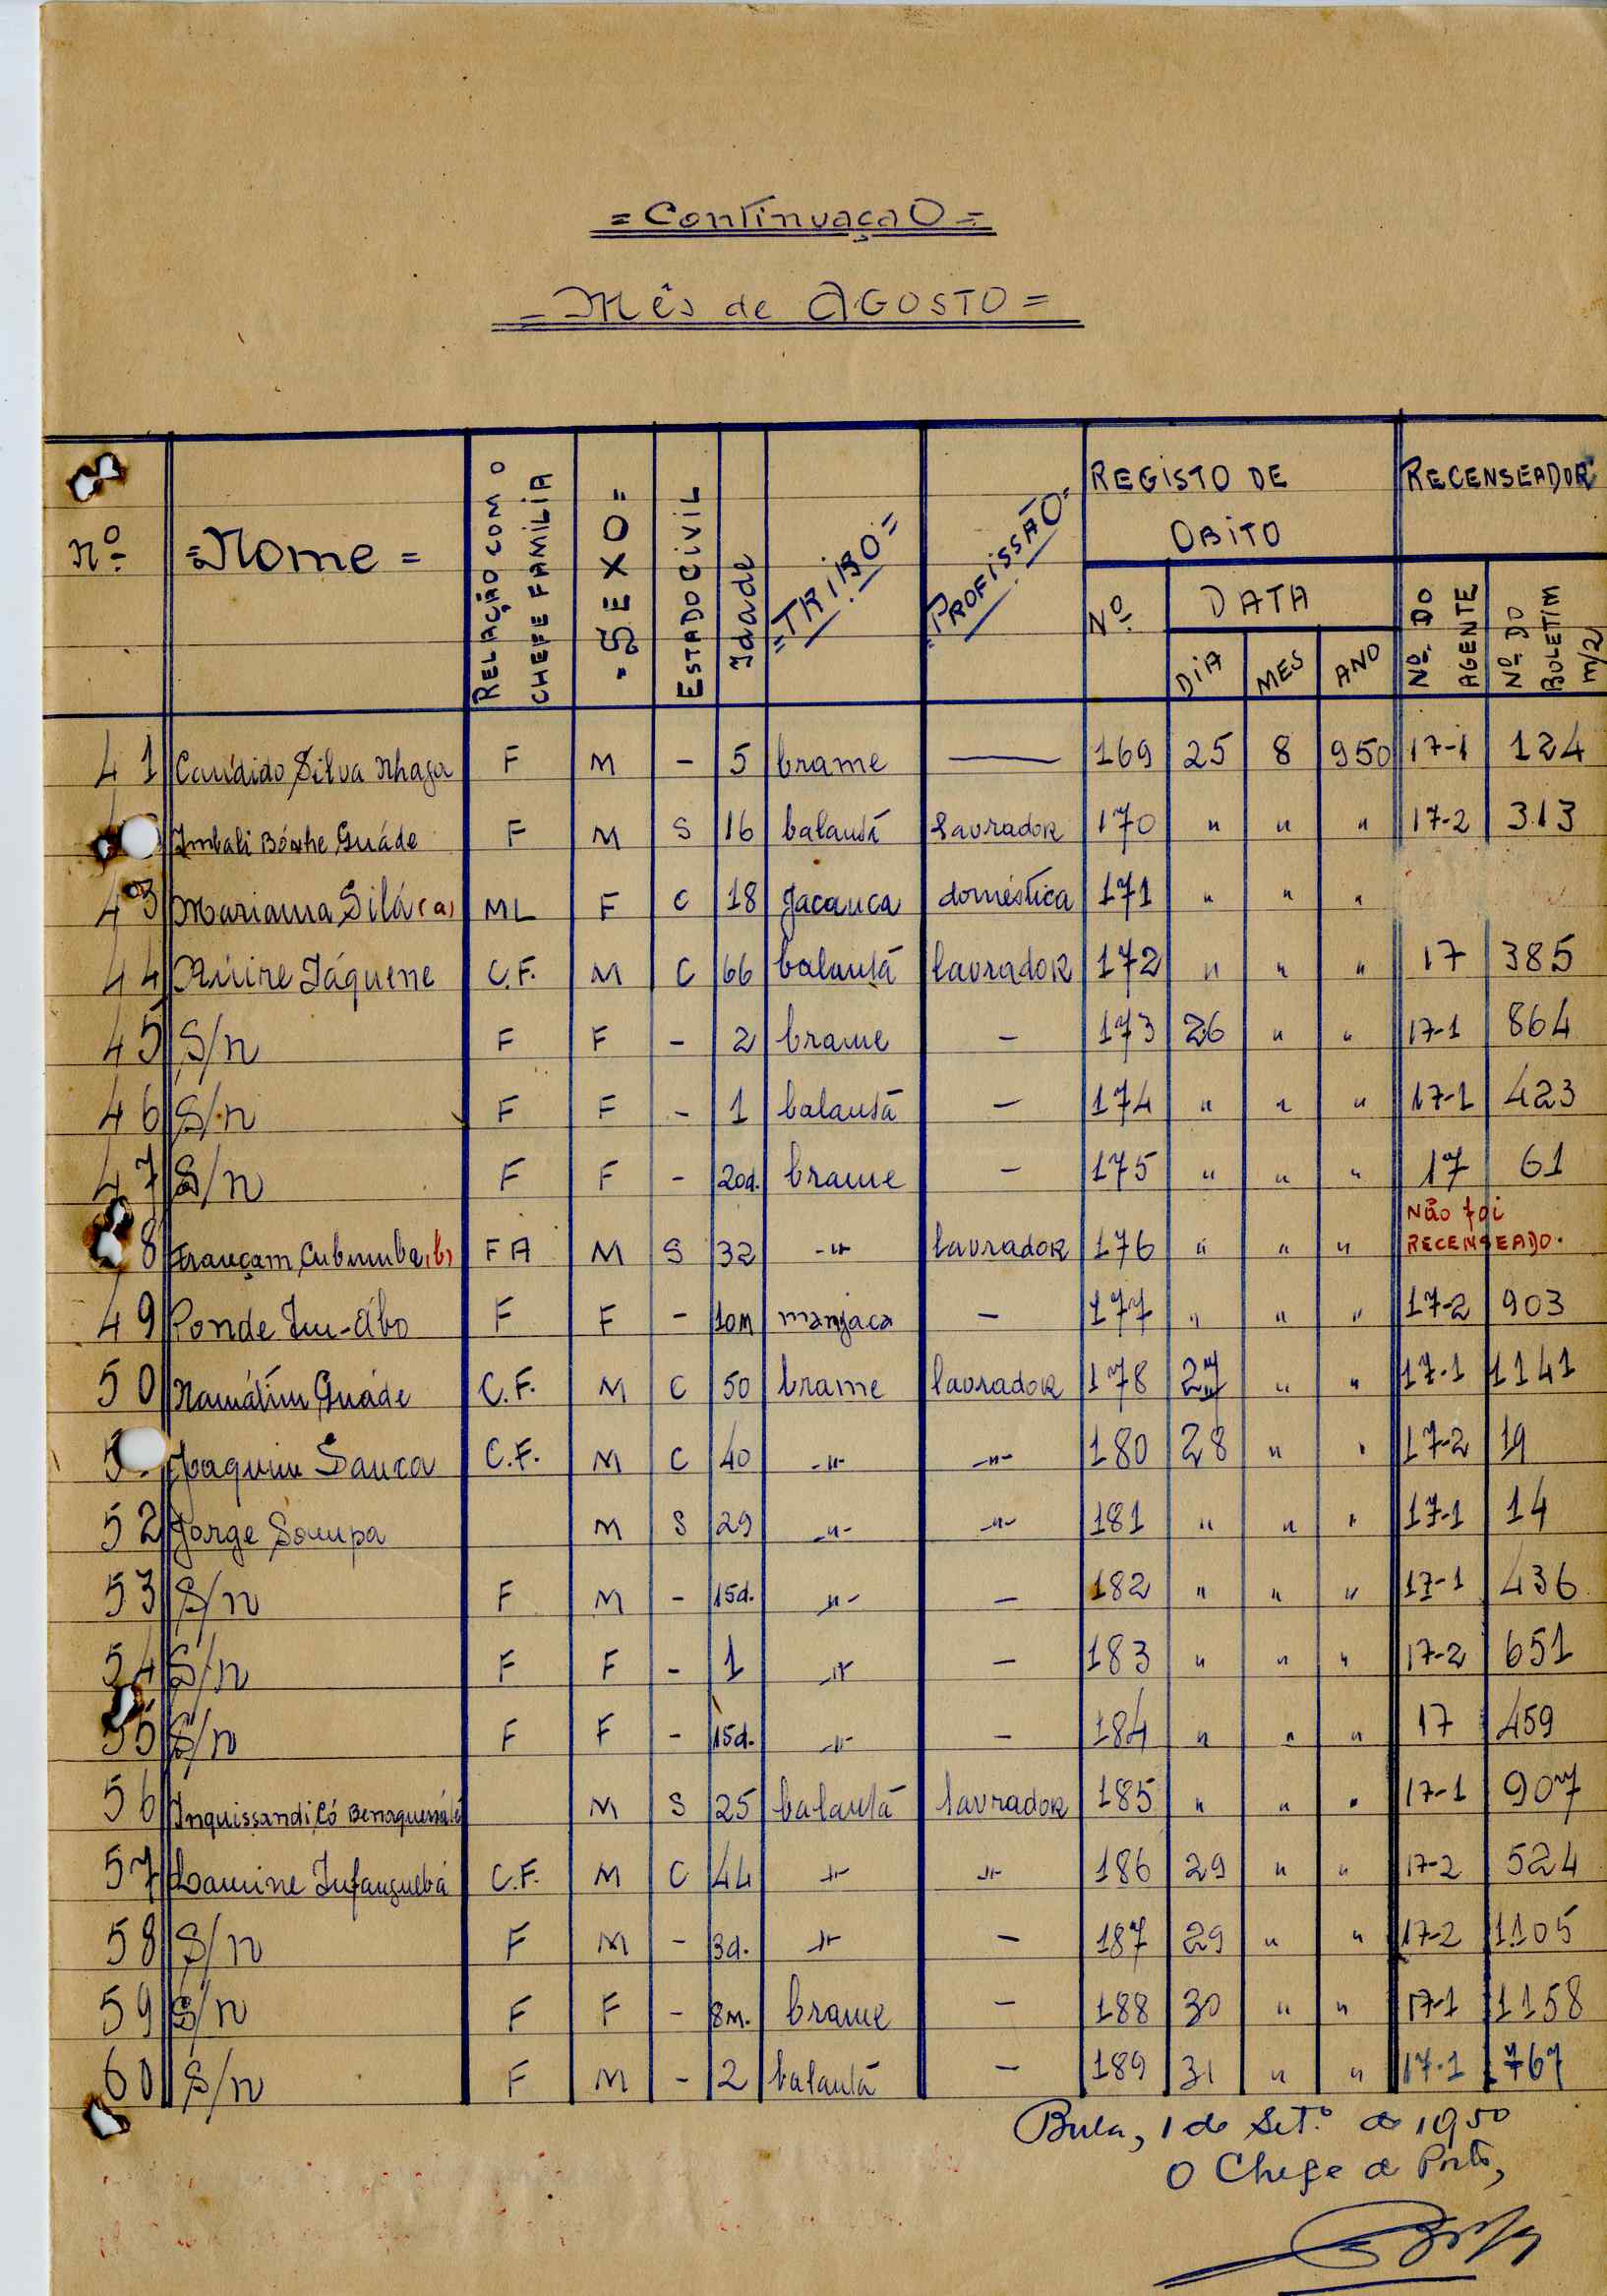 = Continuação =
= Mês de AGOSTO =
Nº
= Nome =
RELAÇÃO COM O CHEFE FAMÍLIA
= SEXO =
ESTADO CIVIL
Idade
= TRIBO =
= PROFISSÃO =
REGISTO DE OBITO
RECENSEADOR
Nº
DATA
DIA MES ANO
Nº DO AGENTE
Nº DO BOLETIM m/2
41 Candido Silva Nhaga F M - 5 brame — 169 25 8 950 17-1 124
Imbali Guáde F M S 16 balantã lavrador 170 " " " 17-2 313
43 Mariama Silá (a) ML F C 18 jacanca doméstica 171 " " "
44 Jáquene C.F. M C 66 balantã lavrador 172 " " " 17 385
45 S/n F F - 2 brame - 173 26 " " 17-1 864
46 S/n F F - 1 balantã - 174 " " " 17-1 423
47 S/n F F - 20d. brame - 175 " " " 17 61
8 Françam Cubumba (b) FA M S 32 -"- lavrador 176 " " " Não foi RECENSEADO.
49 Ponde Im-Ábo F F - 10M manjaca - 177 " " " 17-2 903
50 Namátim Guáde C.F. M C 50 brame lavrador 178 27 " " 17-1 1141
5 Joaquim Sanca C.F. M C 40 -"- -"- 180 28 " " 17-2 19
52 Jorge Sompa M S 29 -"- -"- 181 " " " 17-1 14
53 S/n F M - 15d. -"- - 182 " " " 17-1 436
54 S/n F F - 1 -"- - 183 " " " 17-2 651
55 S/n F F - 15d. -"- - 184 " " " 17 459
56 Inquissandi Có M S 25 balantã lavrador 185 " " " 17-1 907
57 Lamine Infanguebá C.F. M C 44 -"- -"- 186 29 " " 17-2 524
58 S/n F M - 3d. -"- - 187 29 " " 17-2 1105
59 S/n F F - 8M. brame - 188 30 " " 17-1 1158
60 S/n F M - 2 balantã - 189 31 " " 17-1 767
Bula, 1 de Setº de 1950
O Chefe de Posto,